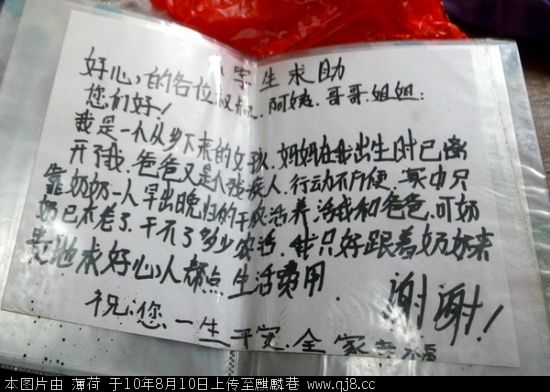 学生求助
好心的各位叔叔、阿姨、哥哥、姐姐:
您们好!
我是一个从乡下来的女孩、妈妈在我出生时已离
开了我、爸爸又是个残疾人、行动不方便、家中只
靠奶奶一人早出晚归的干农活养活我和爸爸、可奶
奶已太老了、干不了多少农活、我只好跟着奶奶来
贵池求好心人帮点生活费用
谢谢!
祝:您一生平安、全家幸福
本图片由 薄荷 于10年8月10日上传至麒麟巷 www.qj8.cc